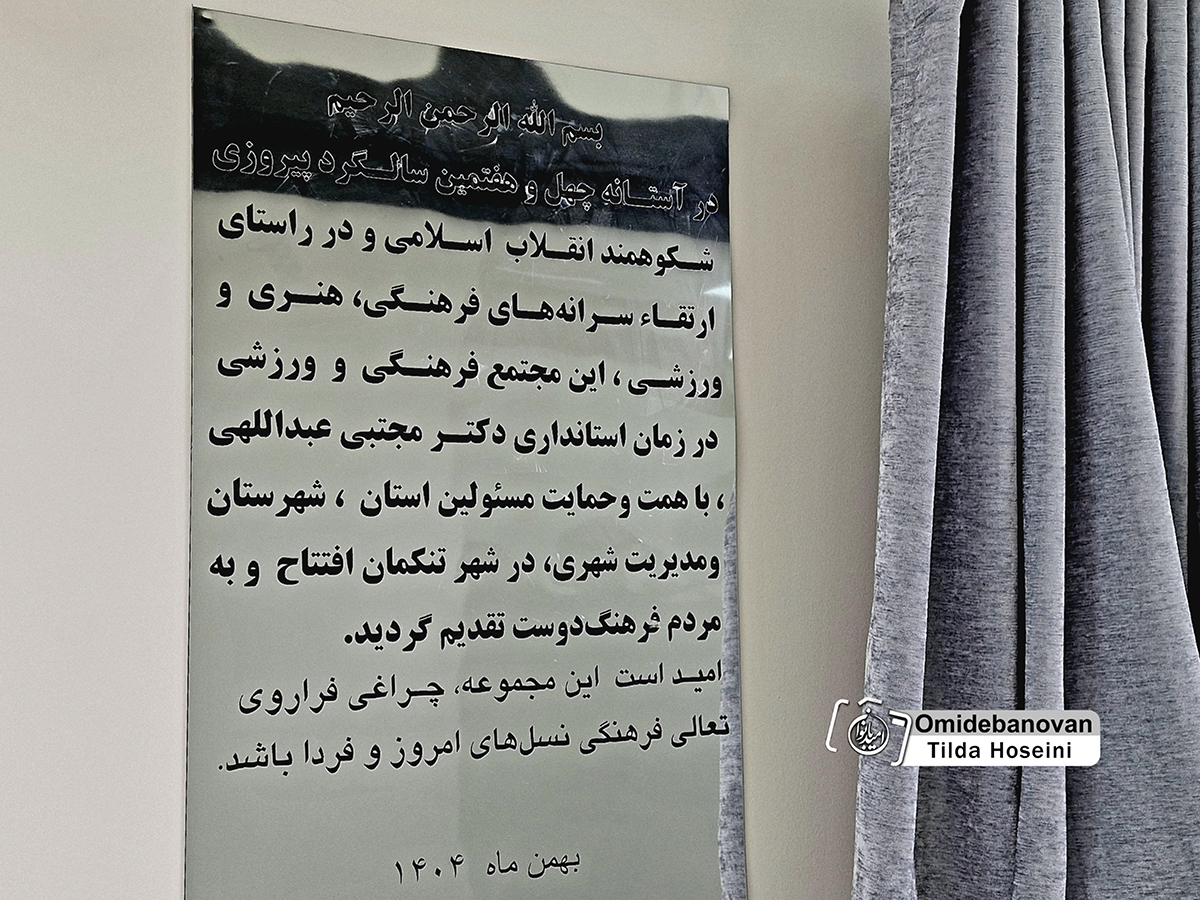 بسم الله الرحمن الرحیم
در آستانه چهل و هفتمین سالگرد پیروزی
شکوهمند انقلاب اسلامی و در راستای
ارتقاء سرانه‌های فرهنگی، هنری و
ورزشی ، این مجتمع فرهنگی و ورزشی
در زمان استانداری دکتر مجتبی عبداللهی
، با همت وحمایت مسئولین استان ، شهرستان
ومدیریت شهری، در شهر تنکمان افتتاح و به
مردم فرهنگ‌دوست تقدیم گردید.
امید است این مجموعه، چراغی فراروی
تعالی فرهنگی نسل‌های امروز و فردا باشد.
بهمن ماه ۱۴۰۴
Omidebanovan
Tilda Hoseini